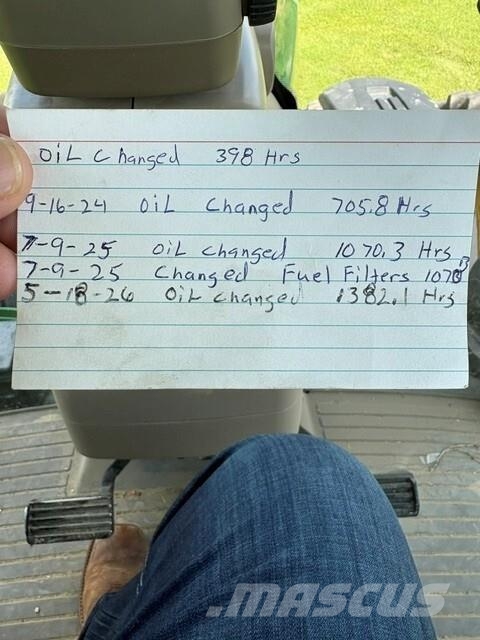 Oil Changed 398 Hrs
9-16-24 Oil Changed 705.8 Hrs
7-9-25 Oil changed 1070.3 Hrs
7-9-25 Changed Fuel Filters 1070.3
5-18-26 Oil changed 1382.1 Hrs
MASCUS